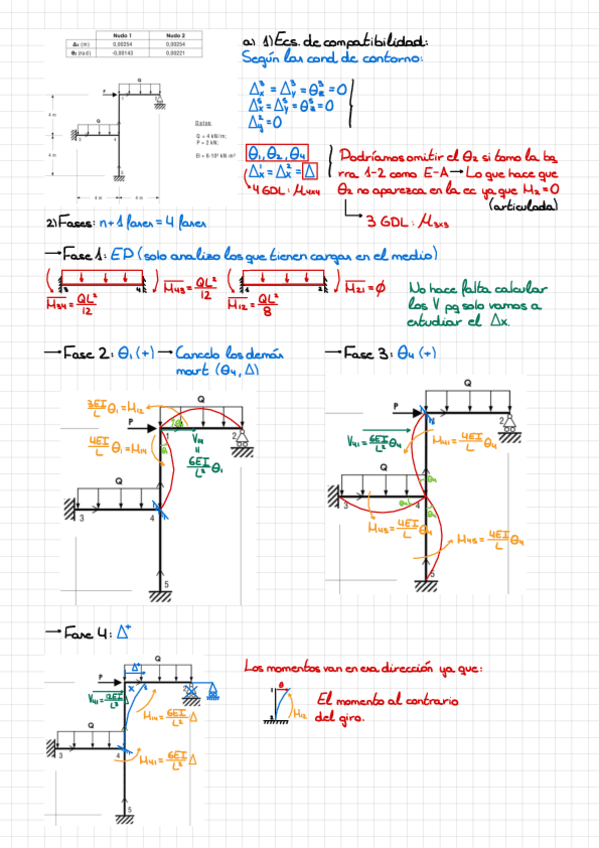 Nudo 1 Nudo 2
Δx (m) 0,00254 0,00254
θz (rad) -0,00143 0,00221
a) 1) Ecs. de compatibilidad:
Según las cond de contorno:
Δx³ = Δy³ = θz³ = 0
Δx⁵ = Δy⁵ = θz⁵ = 0
Δy² = 0
Datos:
Q = 4 kN/m;
P = 2 kN;
4 m
4 m
4 m
4 m
θ1, θ2, θ4
Δx¹ = Δx² = Δ
4 GDL: M4x4
Podríamos omitir el θ2 si tomo la ba
rra 1-2 como E-A → Lo que hace que
θ2 no aparezca en la ec ya que M2 = 0
(articulada)
3 GDL: M3x3
2) Fases: n+1 fases = 4 fases
→ Fase 1: EP (solo analizo los que tienen cargas en el medio)
M34 = QL²/12
M43 = QL²/12
M12 = QL²/8
M21 = ϕ
No hace falta calcular
los V pq solo vamos a
estudiar el Δx.
→ Fase 2: θ1 (+) → Cancelo los demás
movt (θ4, Δ)
→ Fase 3: θ4 (+)
3EI/L θ1 = M12
4EI/L θ1 = M14
P
Q
V14 = 6EI/L² θ1
1
2
Q
3
4
5
P
Q
V41 = 6EI/L² θ4
M41 = 4EI/L θ4
2
Q
3
4
θ4
M43 = 4EI/L θ4
M45 = 4EI/L θ4
5
→ Fase 4: Δ⁺
Q
Δ⁺
P
M14 = 6EI/L² Δ
Q
M41 = 6EI/L² Δ
3
4
5
Los momentos van en esa dirección ya que:
El momento al contrario
del giro.